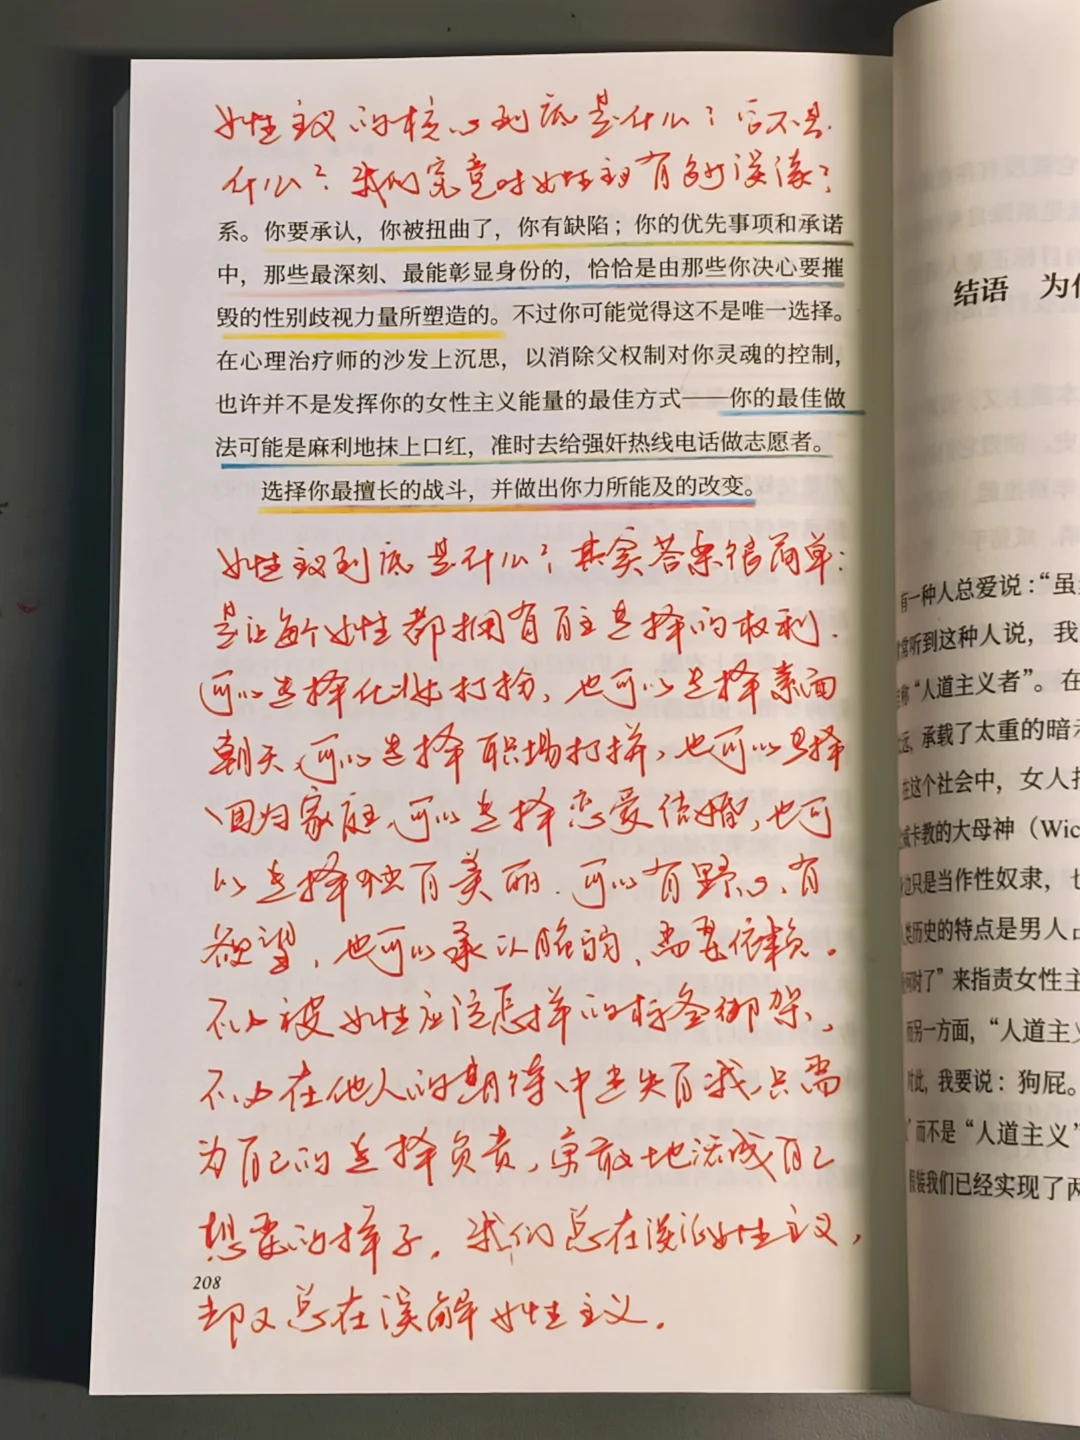 女性主义的核心到底是什么？它不是
什么？我们究竟对女性主义有多少误读？
系。你要承认，你被扭曲了，你有缺陷；你的优先事项和承诺
中，那些最深刻、最能彰显身份的，恰恰是由那些你决心要摧
毁的性别歧视力量所塑造的。不过你可能觉得这不是唯一选择。
在心理治疗师的沙发上沉思，以消除父权制对你灵魂的控制，
也许并不是发挥你的女性主义能量的最佳方式——你的最佳做
法可能是麻利地抹上口红，准时去给强奸热线电话做志愿者。
选择你最擅长的战斗，并做出你力所能及的改变。
女性主义到底是什么？其实答案很简单：
是让每个女性都拥有自主选择的权利.
可以选择化妆打扮，也可以选择素面
朝天、可以选择职场打拼，也可以选择
回归家庭、可以选择恋爱结婚，也可
以选择独自美丽.可以有野心、有
欲望，也可以承认脆弱、需要依赖。
不必被女性应该怎样的标签绑架、
不必在他人的期待中迷失自我、只需
为自己的选择负责，勇敢地活成自己
想要的样子。我们总在谈论女性主义，
却又总在误解女性主义.
208
结语 为
有一种人总爱说：“虽
常听到这种人说，我
称“人道主义者”。在
远，承载了太重的暗
在这个社会中，女人
威卡教的大母神（Wic
边只是当作性奴隶，也
类历史的特点是男人
何时了”来指责女性主
而另一方面，“人道主
对此，我要说：狗屁。
而不是“人道主义”
假装我们已经实现了两